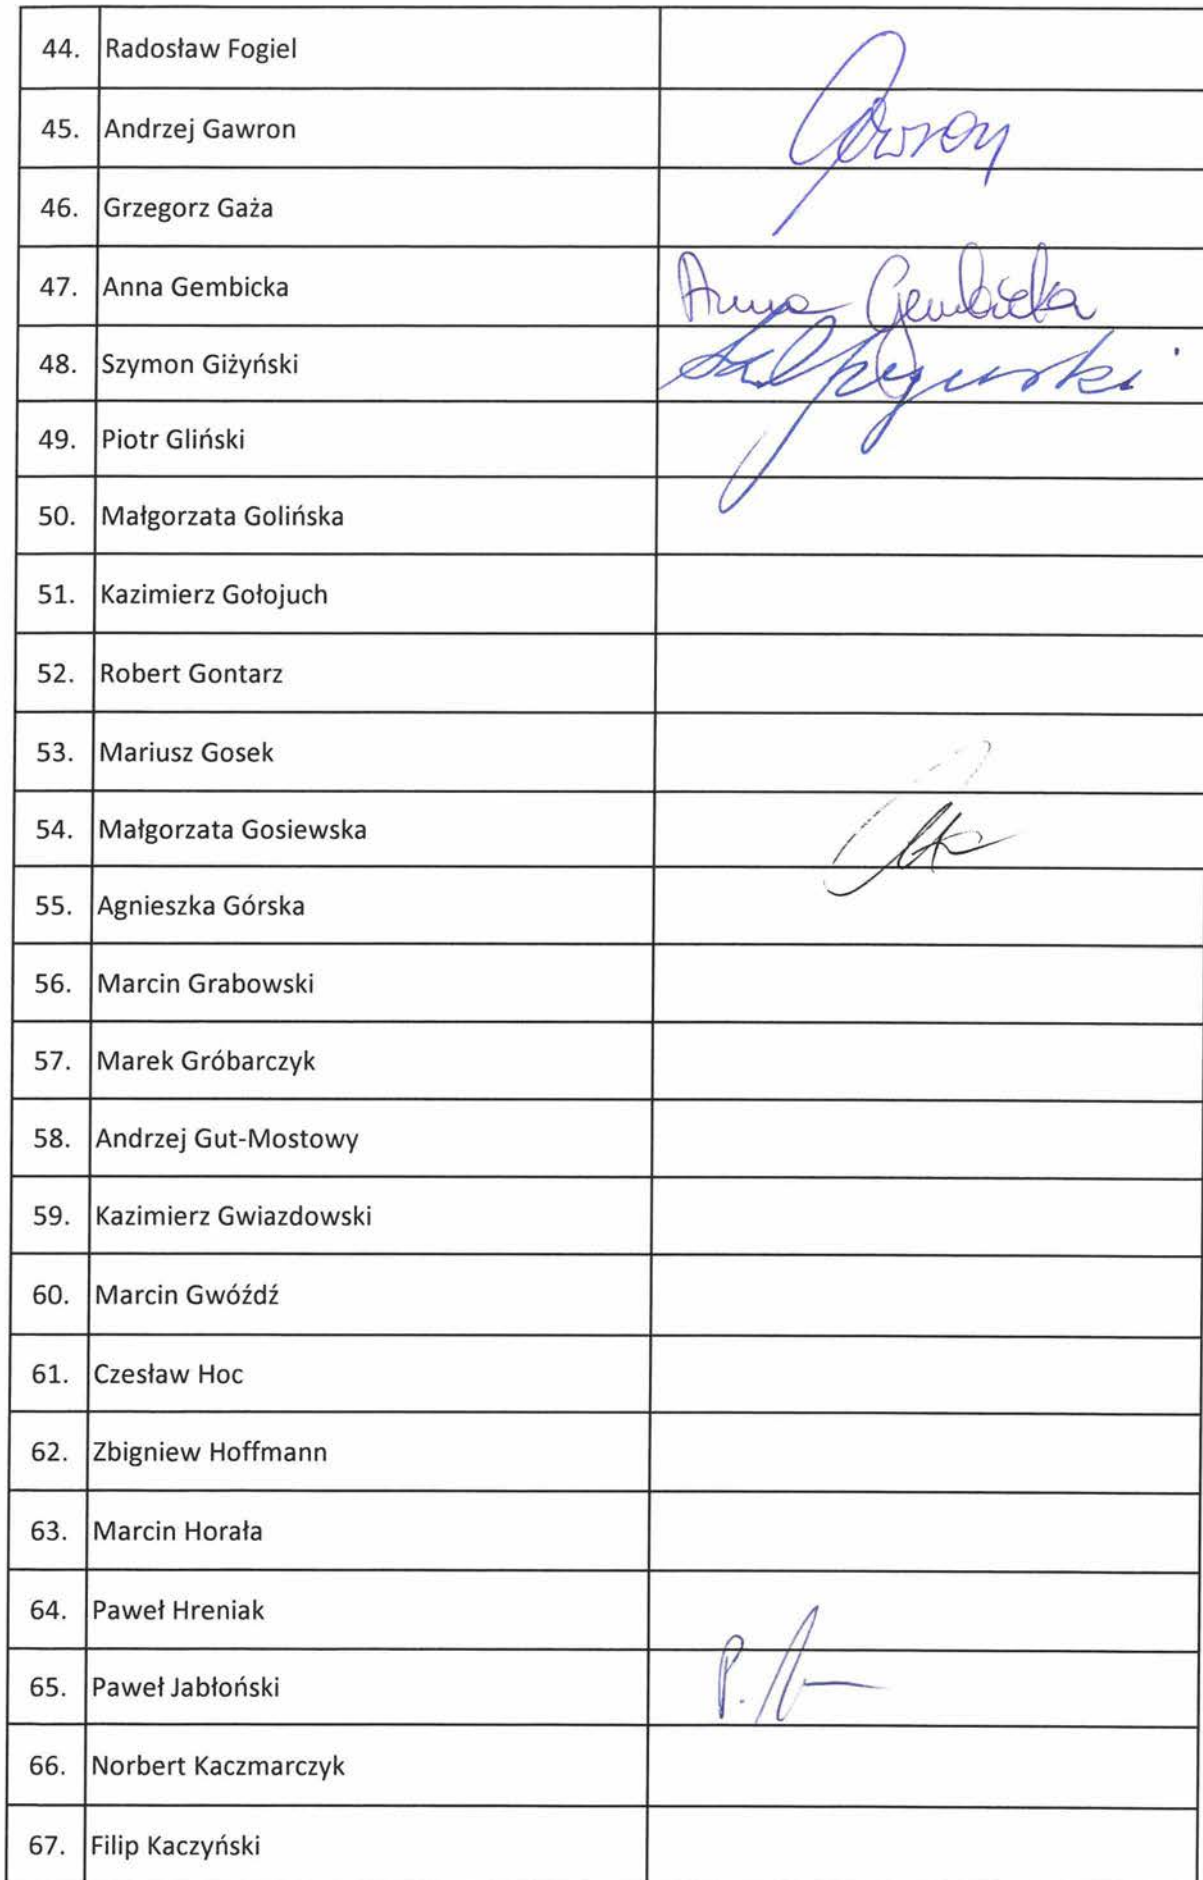 44. Radosław Fogiel
45. Andrzej Gawron Gawron
46. Grzegorz Gaża
47. Anna Gembicka Anna Gembicka
48. Szymon Giżyński
49. Piotr Gliński
50. Małgorzata Golińska
51. Kazimierz Gołojuch
52. Robert Gontarz
53. Mariusz Gosek
54. Małgorzata Gosiewska
55. Agnieszka Górska
56. Marcin Grabowski
57. Marek Gróbarczyk
58. Andrzej Gut-Mostowy
59. Kazimierz Gwiazdowski
60. Marcin Gwóźdź
61. Czesław Hoc
62. Zbigniew Hoffmann
63. Marcin Horała
64. Paweł Hreniak
65. Paweł Jabłoński P.
66. Norbert Kaczmarczyk
67. Filip Kaczyński